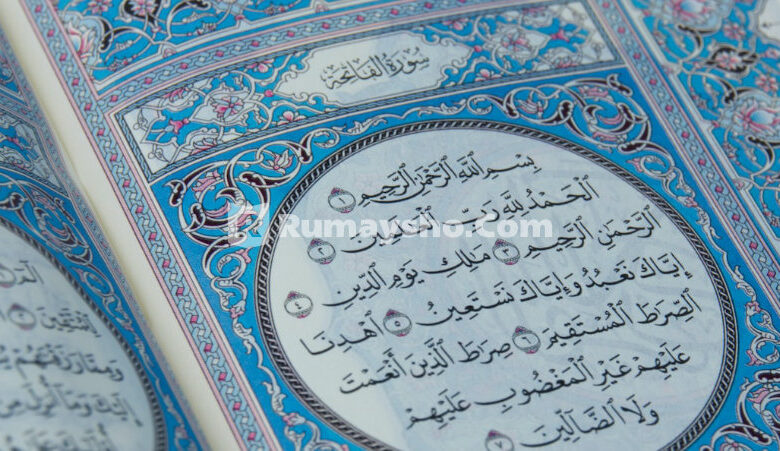 سُورَةُ الفَاتِحَةِ
بِسْمِ ٱللَّهِ ٱلرَّحْمَٰنِ ٱلرَّحِيمِ ١
ٱلْحَمْدُ لِلَّهِ رَبِّ ٱلْعَٰلَمِينَ ٢
ٱلرَّحْمَٰنِ ٱلرَّحِيمِ ٣ مَٰلِكِ يَوْمِ ٱلدِّينِ ٤
إِيَّاكَ نَعْبُدُ وَإِيَّاكَ نَسْتَعِينُ ٥ ٱهْدِنَا
ٱلصِّرَٰطَ ٱلْمُسْتَقِيمَ ٦ صِرَٰطَ ٱلَّذِينَ أَنْعَمْتَ
عَلَيْهِمْ غَيْرِ ٱلْمَغْضُوبِ عَلَيْهِمْ
وَلَا ٱلضَّآلِّينَ ٧
Rumaysho.Com